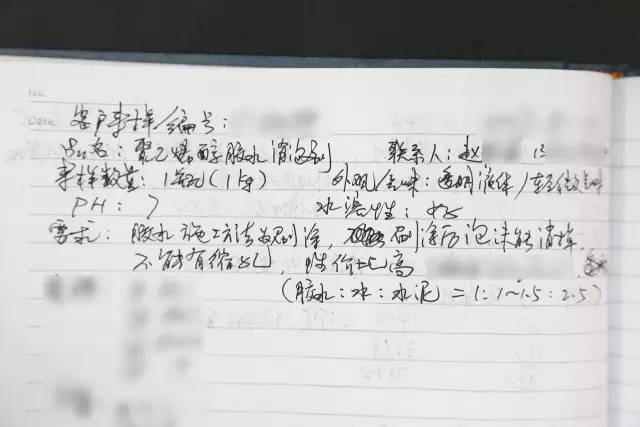 No.
Date
客户来样/编号:
品名:聚乙烯醇胶水消泡剂 联系人:赵
来样数量:1瓶(1kg) 外观/气味:透明液体/轻微气味
PH:7 水溶性:好
要求:胶水施工方法为刷涂,刷涂后泡沫能消掉,
不能有缩孔,性价比高
(胶水:水:水泥=1:1~1.5:2.5)